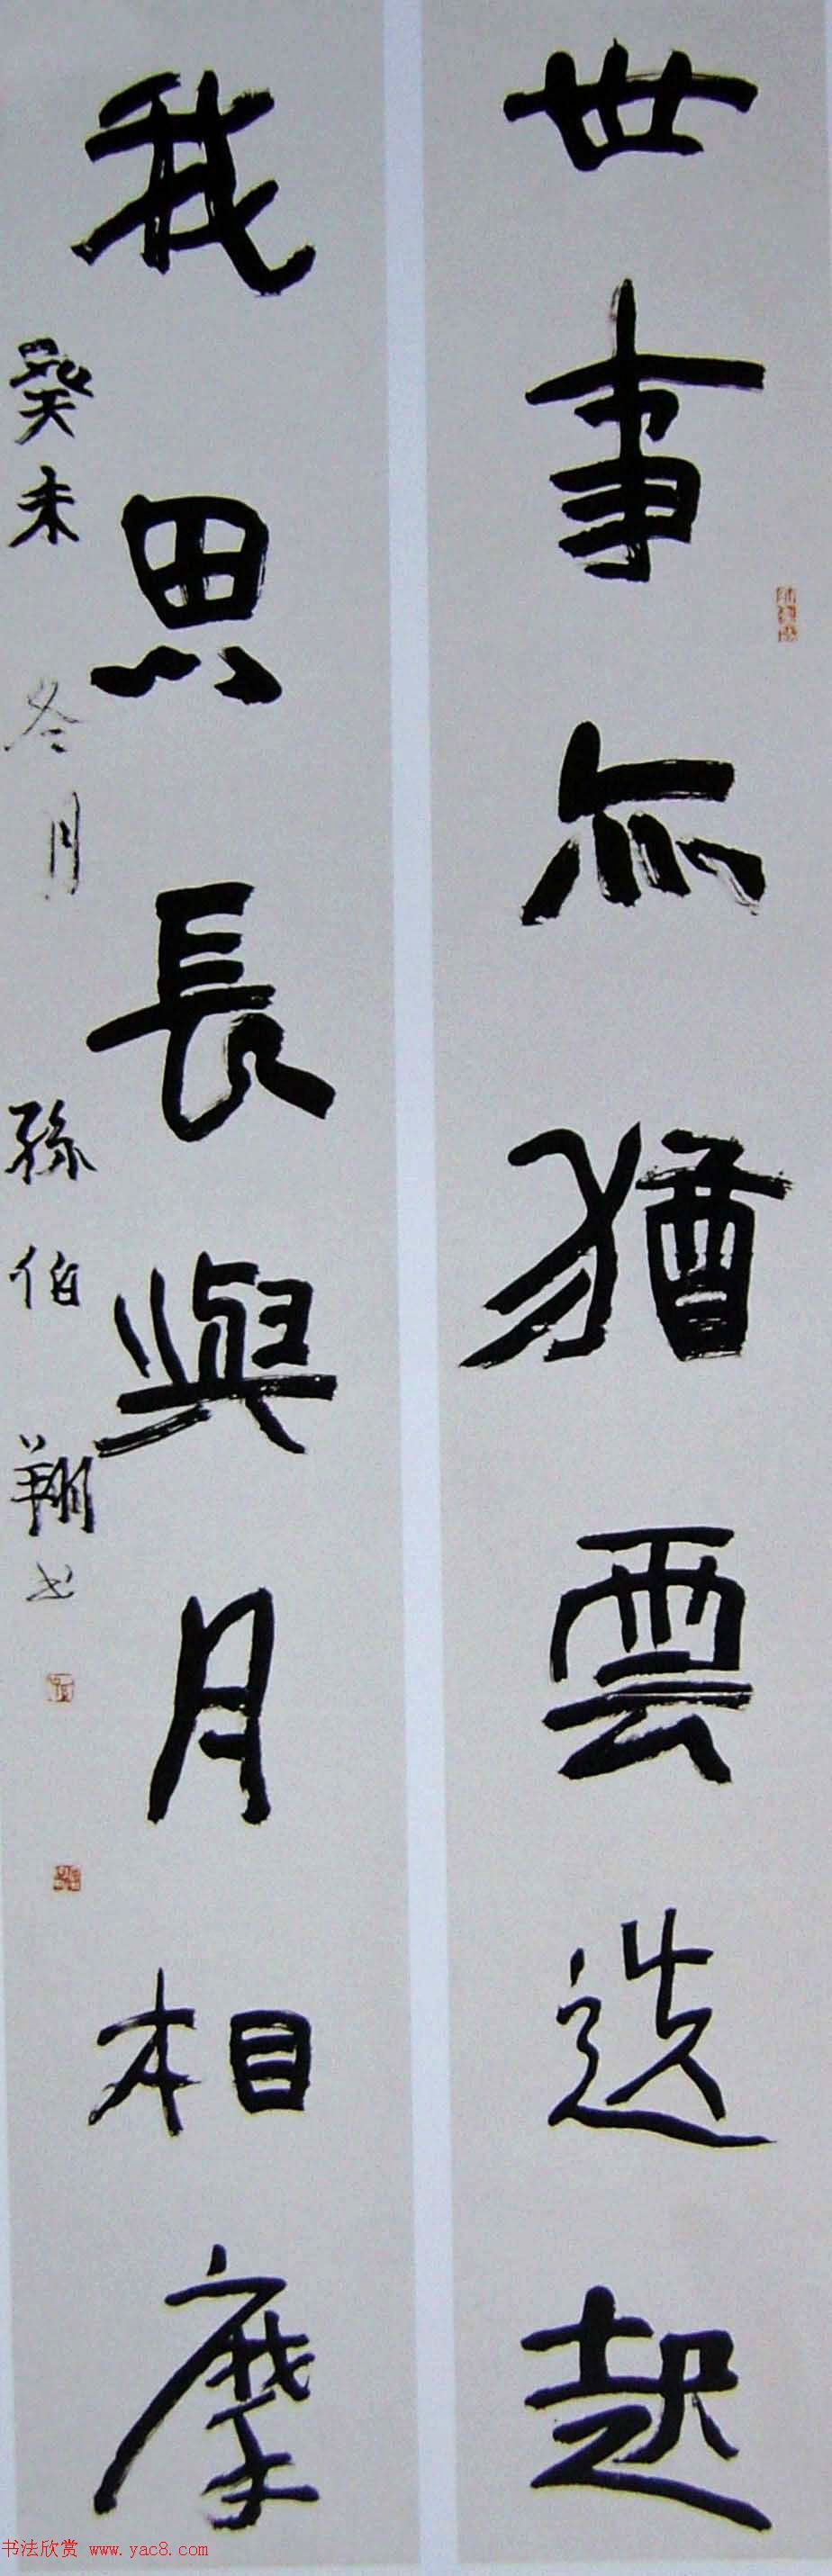 世事亦猶雲迭起
我思長與月相摩
癸未冬月 孫伯翔书
书法欣赏 www.yac8.com